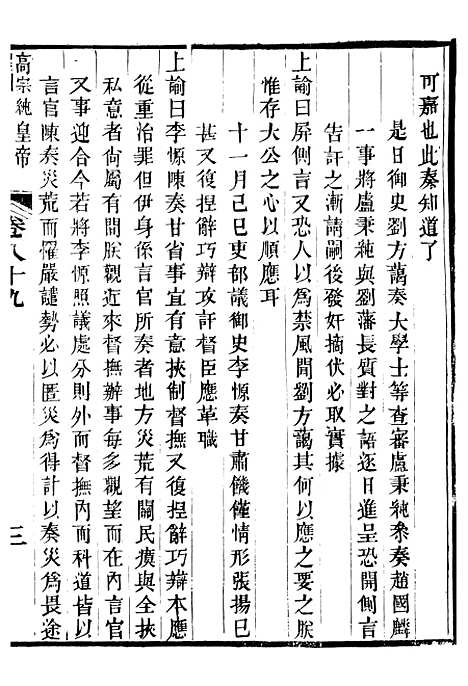 可嘉也此奏知道了
是日御史劉方藹奏大學士等查審盧秉純叅奏趙國麟
一事將盧秉純與劉藩長質對之語逐日進呈恐開側言
告訐之漸請嗣後發奸摘伏必取實據
上諭曰屏側言又恐人以爲禁風聞劉方藹其何以應之要之朕
惟存大公之心以順應耳
十一月己巳吏部議御史李㦂奏甘肅饑饉情形張揚已
甚又復捏辭巧辯攻訐督臣應革職
上諭曰李㦂陳奏甘省事宜有意挾制督撫又復捏辭巧辯本應
從重治罪但伊身係言官所奏者地方災荒有關民瘼與全挾
私意者尙屬有間朕觀近來督撫辦事每多觀望而在內言官
又事迎合今若將李㦂照議處分則外而督撫內而科道皆以
言官陳奏災荒而罹嚴譴勢必以匿災爲得計以奏災爲畏途
高宗純皇帝
卷八十九
三